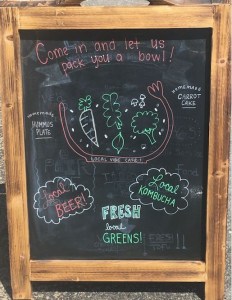 Come in and let us
pack you a bowl!
HOMEMADE
HUMMUS
PLATE
HOMEMADE
CARROT
CAKE
LOCAL VIBE CAFE!
local
BEER!
Local
KOMBUCHA
FRESH
local
GREENS!